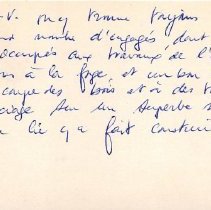 -V. on y trouve toujours
nombre d'engagés dont
occupés aux travaux de l'
à la forge, et un bon
coupe des bois et à des tr
sur un superbe s
lié y a fait construi